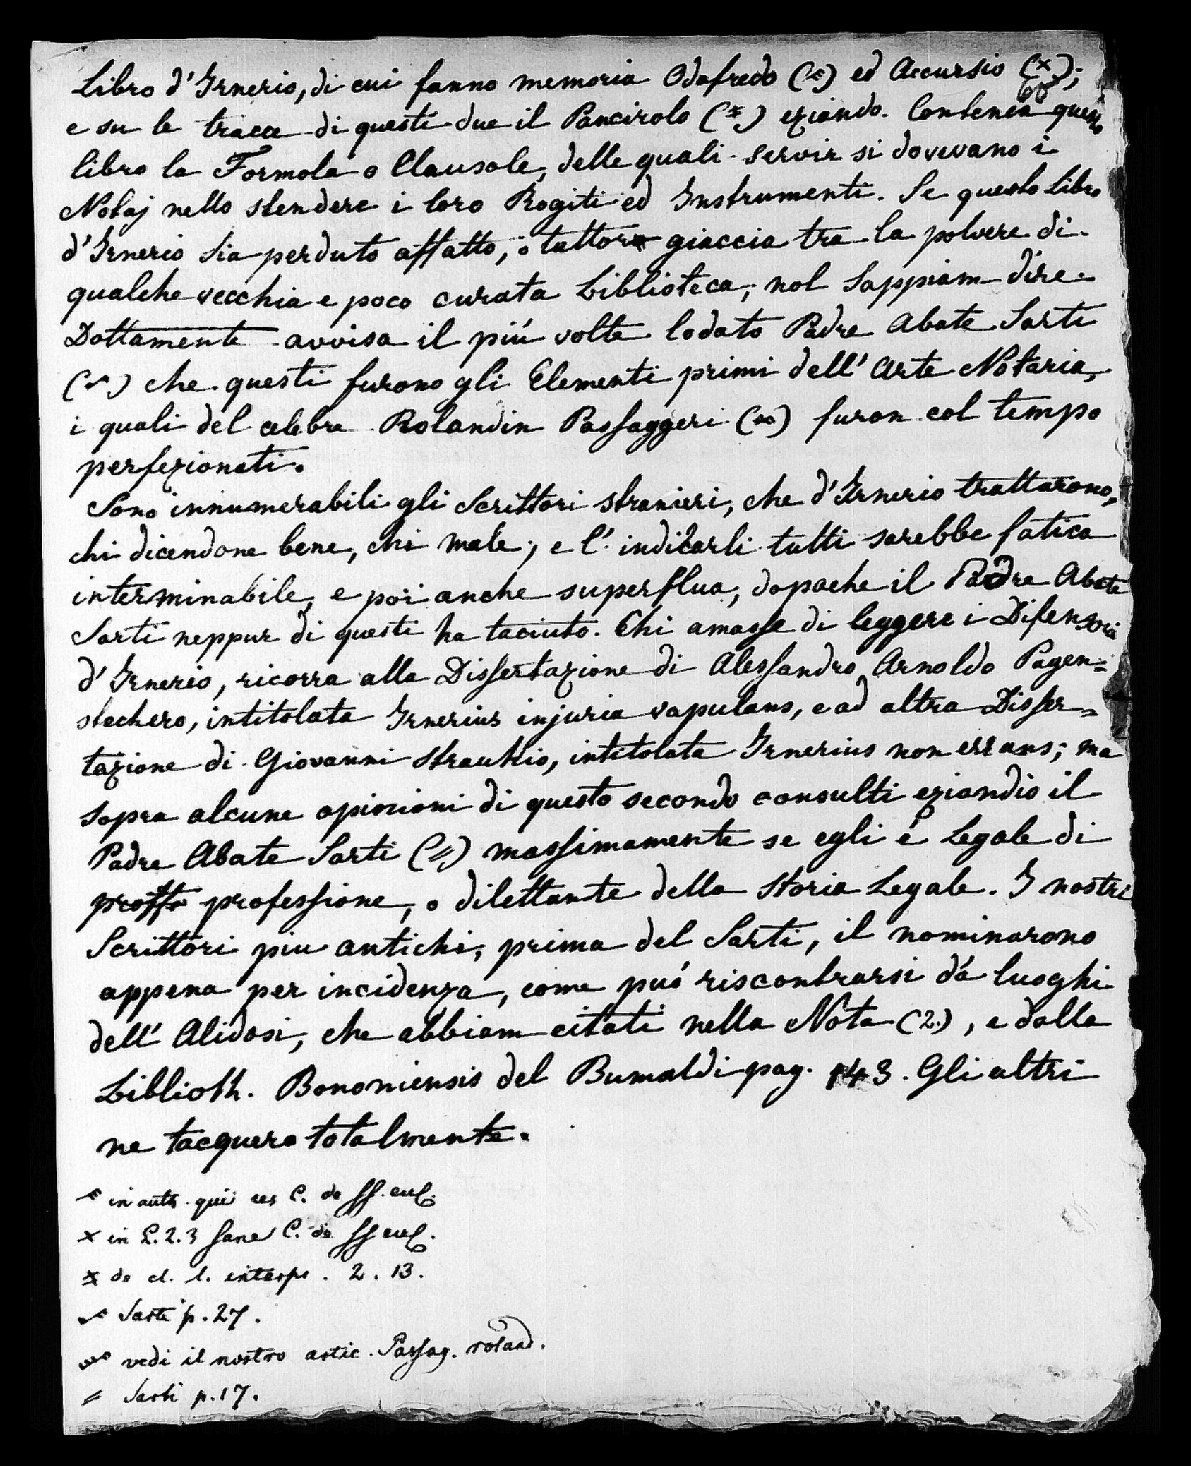 Libro d'Irnerio, di cui fanno memoria Odofredo () ed Accursio (x);
60
e su le tracce di questi due il Panciroli (x) eziando. Contenea questo
libro la Formola o Clausole, delle quali servir si dovevano i
Notaj nello stendere i loro Rogiti ed Instrumenti. Se questo Libro
d'Irnerio sia perduto affatto, o tuttora giaccia tra la polvere di
qualche vecchia e poco curata Biblioteca, nol sappiam dire.
Dottamente avvisa il più volte lodato Padre Abate Sarti
() che questi furono gli Elementi primi dell' Arte Notaria,
i quali del celebre Rolandin Passaggeri () furon col tempo
perfezionati.
Sono innumerabili gli Scrittori stranieri, che d'Irnerio trattarono,
chi dicendone bene, chi male; e l' indicarli tutti sarebbe fatica
interminabile, e poi anche superflua, dopoche il Padre Abate
Sarti neppur di questi ha taciuto. Chi amasse di leggere i Difensori
d'Irnerio, ricorra alla Dissertazione di Alessandro Arnoldo Pagen=
stechero, intitolata Irnerius injuria vapulans, e ad altra Disser=
tazione di Giovanni Strauchio, intitolata Irnerius non errans; ma
sopra alcune opinioni di questo secondo consulti eziandio il
Padre Abate Sarti (=) massimamente se egli é Legale di
professione, o dilettante della Storia Legale. I nostri
Scrittori piu antichi, prima del Sarti, il nominarono
appena per incidenza, come puó riscontrarsi dá luoghi
dell' Alidosi, che abbiam citati nella Nota (2.), e dalla
Biblioth. Bononiensis del Bumaldi pag. 143. Gli altri
ne tacquero totalmente.
in auth. qui res C. de SS. eccl.
x in L. 2. 3 sane C. de SS eccl.
x de cl. l. interpr. 2. 13.
Sarti p. 27.
vedi il nostro artic. Passag. roland.
= Sarti p. 17.